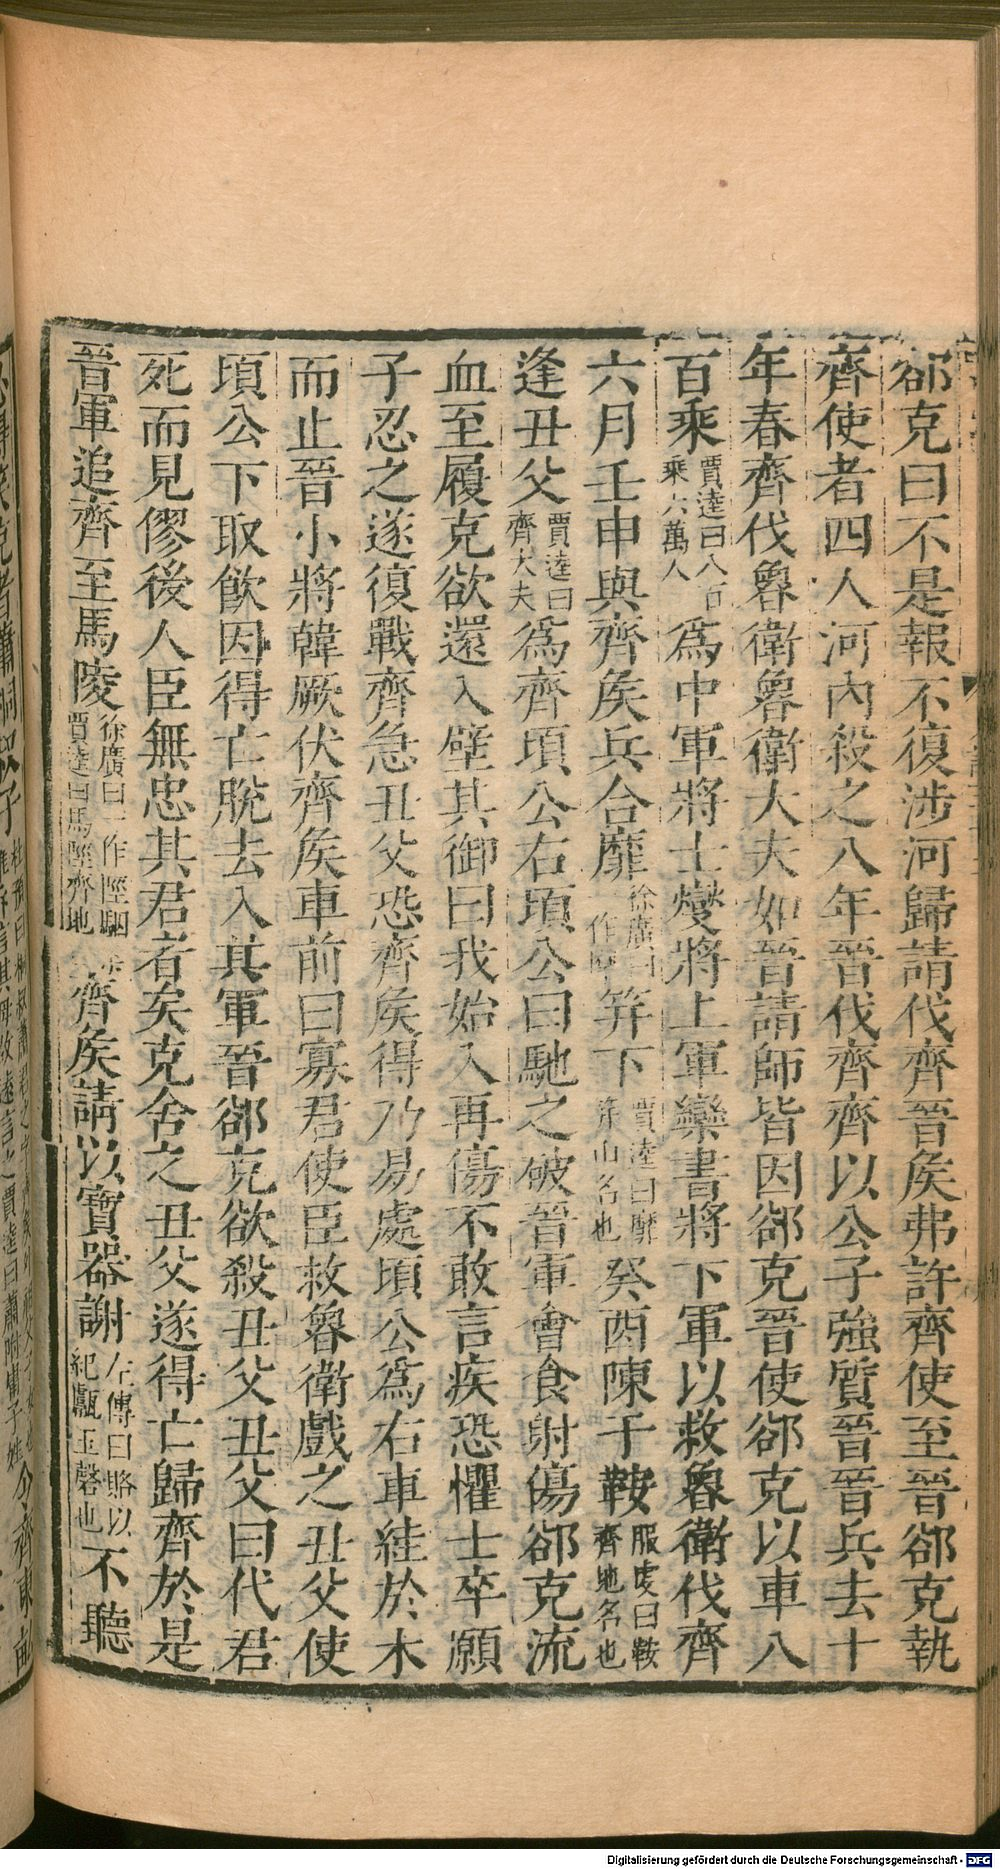 郤克曰不是報不復涉河歸請伐齊晉矦弗許齊使至晉郤克執
齊使者四人河內殺之八年晉伐齊齊以公子強質晉晉兵去十
年春齊伐魯衛魯衛大夫如晉請師皆因郤克晉使郤克以車八
百乘賈逵曰八百乘六萬人爲中軍將士燮將上軍欒書將下軍以救魯衛伐齊
六月壬申與齊矦兵合靡徐廣曰一作䃺笄下賈逵曰靡笄山名也癸酉陳于鞍服虔曰鞍齊地名也
逢丑父賈逵曰齊大夫爲齊頃公右頃公曰馳之破晉軍會食射傷郤克流
血至履克欲還入壁其御曰我始入再傷不敢言疾恐懼士卒願
子忍之遂復戰齊急丑父恐齊矦得乃易處頃公爲右車絓於木
而止晉小將韓厥伏齊矦車前曰寡君使臣救魯衛戲之丑父使
頃公下取飲因得亡脫去入其軍晉郤克欲殺丑父丑父曰代君
死而見僇後人臣無忠其君者矣克舍之丑父遂得亡歸齊於是
晉軍追齊至馬陵徐廣曰一作陘駰賈逵曰馬陘齊地齊矦請以寶器謝左傳曰賂以紀甗玉磬也不聽
Digitalisierung gefördert durch die Deutsche Forschungsgemeinschaft - DFG